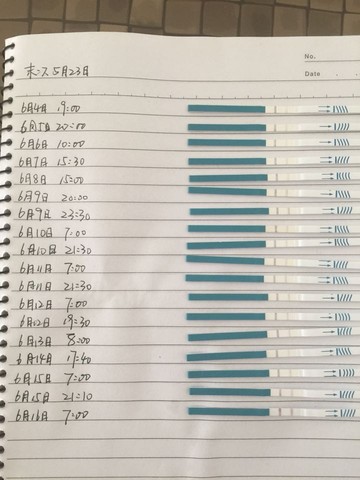 No.
Date
末次5月23日
6月4日 19:00
6月5日 20:00
6月6日 10:00
6月7日 15:30
6月8日 15:00
6月9日 20:00
6月9日 23:30
6月10日 7:00
6月10日 21:30
6月11日 7:00
6月11日 21:30
6月12日 7:00
6月12日 19:30
6月13日 8:00
6月14日 17:40
6月15日 7:00
6月15日 21:10
6月16日 7:00